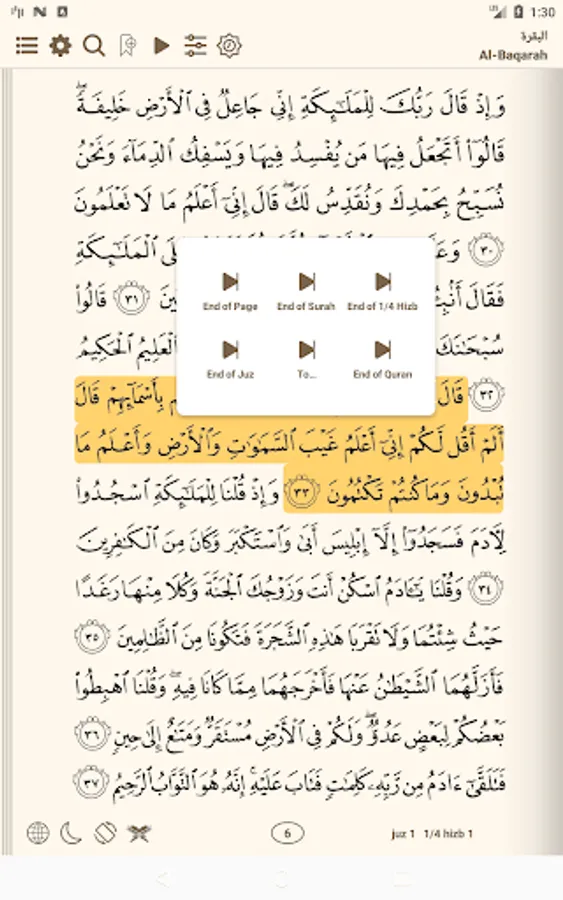 1:30
البقرة
Al-Baqarah
وَإِذْ قَالَ رَبُّكَ لِلْمَلَـٰٓئِكَةِ إِنِّى جَاعِلٌ فِى ٱلْأَرْضِ خَلِيفَةً ۖ
قَالُوٓا۟ أَتَجْعَلُ فِيهَا مَن يُفْسِدُ فِيهَا وَيَسْفِكُ ٱلدِّمَآءَ وَنَحْنُ
نُسَبِّحُ بِحَمْدِكَ وَنُقَدِّسُ لَكَ ۖ قَالَ إِنِّىٓ أَعْلَمُ مَا لَا تَعْلَمُونَ
٣٠ ٱلْمَلَـٰٓئِكَةِ
فَقَالَ ٣١ قَالُوا۟
سُبْحَـٰنَكَ ٱلْعَلِيمُ ٱلْحَكِيمُ
٣٢ قَالَ بِأَسْمَآئِهِمْ قَالَ
أَلَمْ أَقُل لَّكُمْ إِنِّىٓ أَعْلَمُ غَيْبَ ٱلسَّمَـٰوَٰتِ وَٱلْأَرْضِ وَأَعْلَمُ مَا
تُبْدُونَ وَمَا كُنتُمْ تَكْتُمُونَ ٣٣ وَإِذْ قُلْنَا لِلْمَلَـٰٓئِكَةِ ٱسْجُدُوا۟
لِـَٔادَمَ فَسَجَدُوٓا۟ إِلَّآ إِبْلِيسَ أَبَىٰ وَٱسْتَكْبَرَ وَكَانَ مِنَ ٱلْكَـٰفِرِينَ
٣٤ وَقُلْنَا يَـٰٓـَٔادَمُ ٱسْكُنْ أَنتَ وَزَوْجُكَ ٱلْجَنَّةَ وَكُلَا مِنْهَا رَغَدًا
حَيْثُ شِئْتُمَا وَلَا تَقْرَبَا هَـٰذِهِ ٱلشَّجَرَةَ فَتَكُونَا مِنَ ٱلظَّـٰلِمِينَ ٣٥
فَأَزَلَّهُمَا ٱلشَّيْطَـٰنُ عَنْهَا فَأَخْرَجَهُمَا مِمَّا كَانَا فِيهِ ۖ وَقُلْنَا ٱهْبِطُوا۟
بَعْضُكُمْ لِبَعْضٍ عَدُوٌّ ۖ وَلَكُمْ فِى ٱلْأَرْضِ مُسْتَقَرٌّ وَمَتَـٰعٌ إِلَىٰ حِينٍ ٣٦
فَتَلَقَّىٰٓ ءَادَمُ مِن رَّبِّهِۦ كَلِمَـٰتٍ فَتَابَ عَلَيْهِ ۚ إِنَّهُۥ هُوَ ٱلتَّوَّابُ ٱلرَّحِيمُ ٣٧
End of Page End of Surah End of 1/4 Hizb
End of Juz To... End of Quran
6
juz 1 1/4 hizb 1